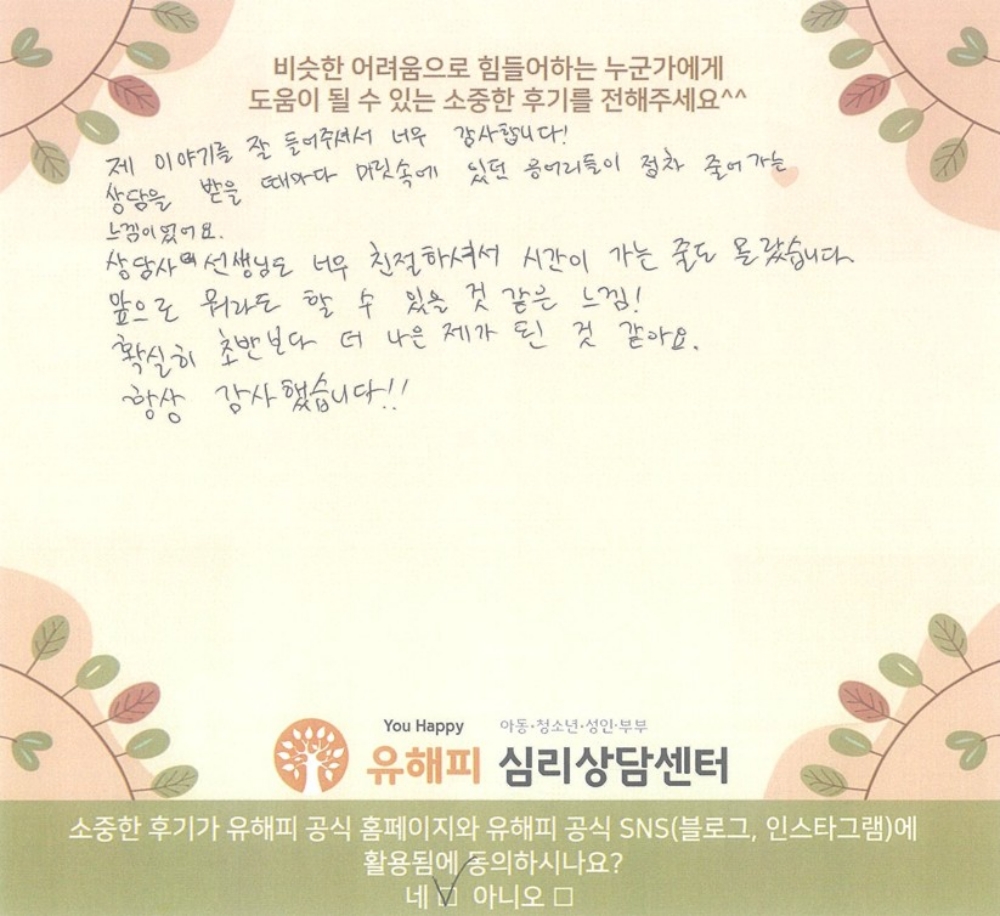 비슷한 어려움으로 힘들어하는 누군가에게
도움이 될 수 있는 소중한 후기를 전해주세요^^
제 이야기를 잘 들어주셔서 너무 감사합니다!
상담을 받을 때마다 머릿속에 있던 응어리들이 점차 줄어가는
느낌이었어요.
상담사 선생님도 너무 친절하셔서 시간이 가는 줄도 몰랐습니다
앞으로 뭐라도 할 수 있을 것 같은 느낌!
확실히 초반보다 더 나은 제가 된 것 같아요.
항상 감사했습니다!!
You Happy 아동·청소년·성인·부부
유해피 심리상담센터
소중한 후기가 유해피 공식 홈페이지와 유해피 공식 SNS(블로그, 인스타그램)에
활용됨에 동의하시나요?
네 ☑ 아니오 □